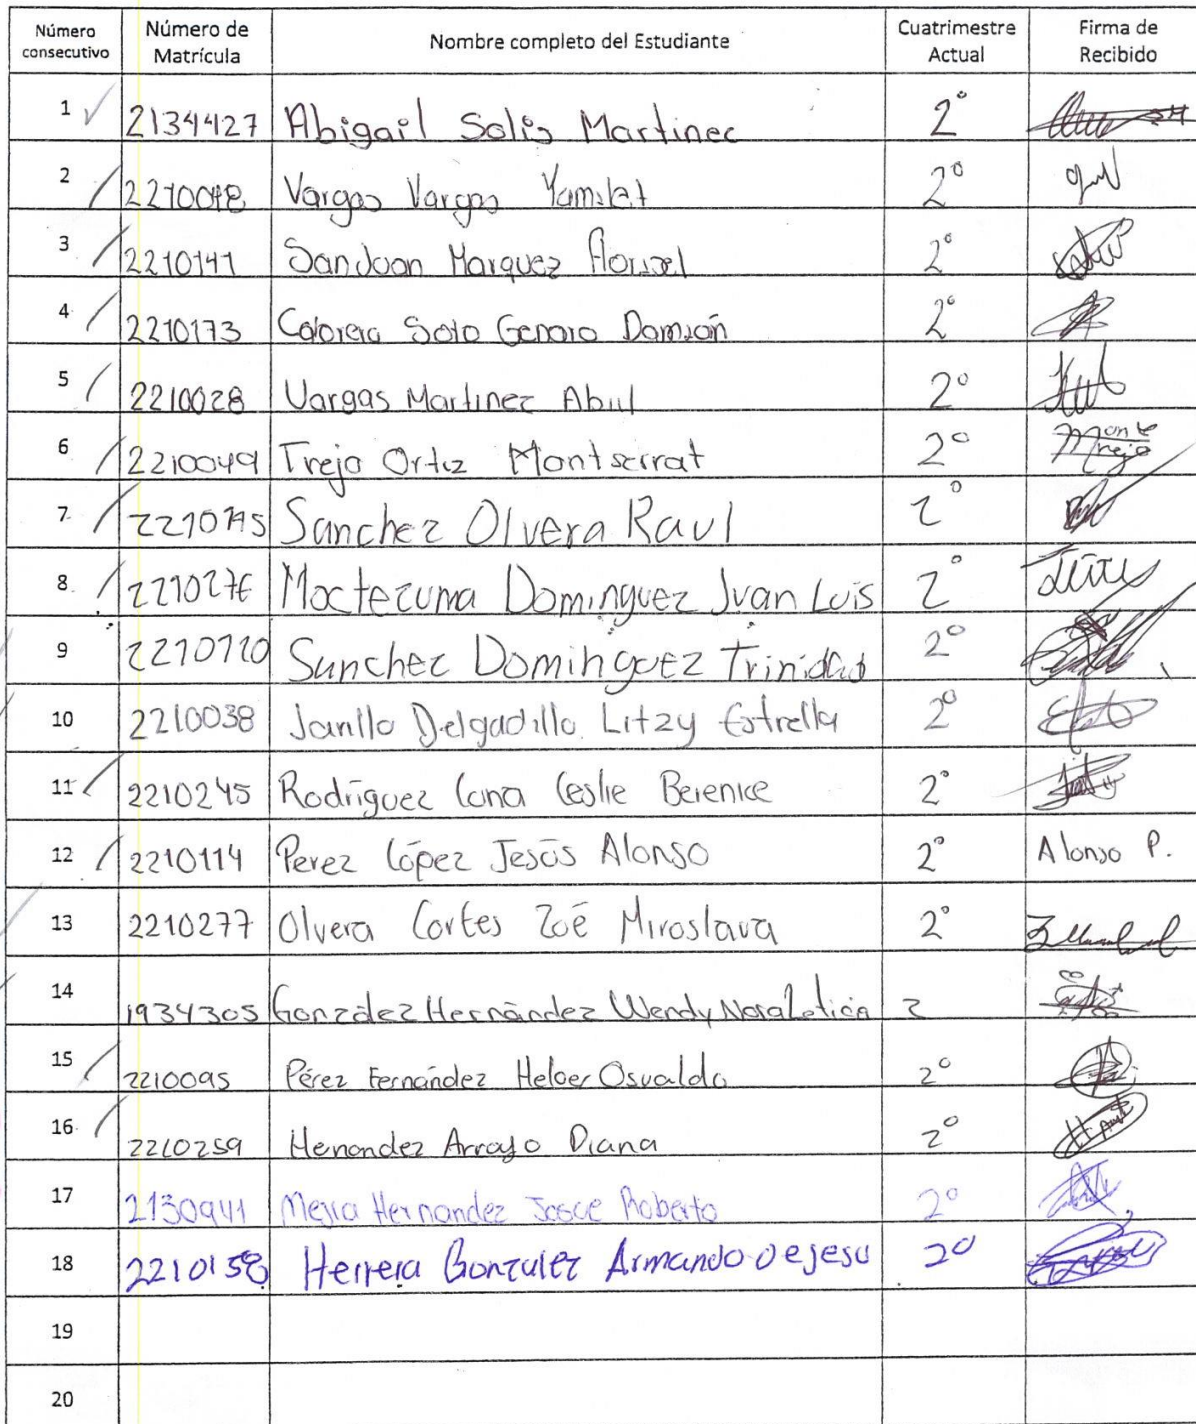 Número consecutivo Número de Matrícula Nombre completo del Estudiante Cuatrimestre Actual Firma de Recibido
1 2134427 Abigail Solis Martinec 2°
2 Vargas Vargas 2°
3 2210141 SanJuan Marquez 2°
4 2210173 Soto Genaro Damián 2°
5 2210028 Vargas Martinez 2°
6 2210049 Trejo Ortiz Montserrat 2° Monte Trejo
7 Sanchez Olvera Raul 2°
8 2210276 Moctezuma Dominguez Juan Luis 2°
9 2210120 Sanchez Dominguez Trinidad 2°
10 2210038 Delgadillo Litzy Estrella 2°
11 2210245 Rodriguez Leslie Berenice 2°
12 2210114 Perez López Jesús Alonso 2° Alonso P.
13 2210277 Olvera Cortes Zoé Miroslava 2°
14 1934305 González Hernández Wendy Nora Leticia 2
15 2210095 Pérez Fernández Osvaldo 2°
16 2210259 Henandez Arrayo Diana 2°
17 Hernandez Roberto 2°
18 Herrera Gonzalez Armando de jesu 2°
19
20